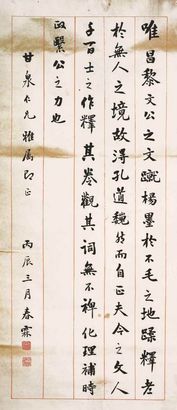 唯昌黎文公之文蹴楊墨於不毛之地蹂釋老
於無人之境故得孔道巍然而自正夫今之文人
千百士之作釋其卷觀其詞無不裨化理補時
政繄公之力也
甘泉仁兄雅屬即正
丙辰三月春霖